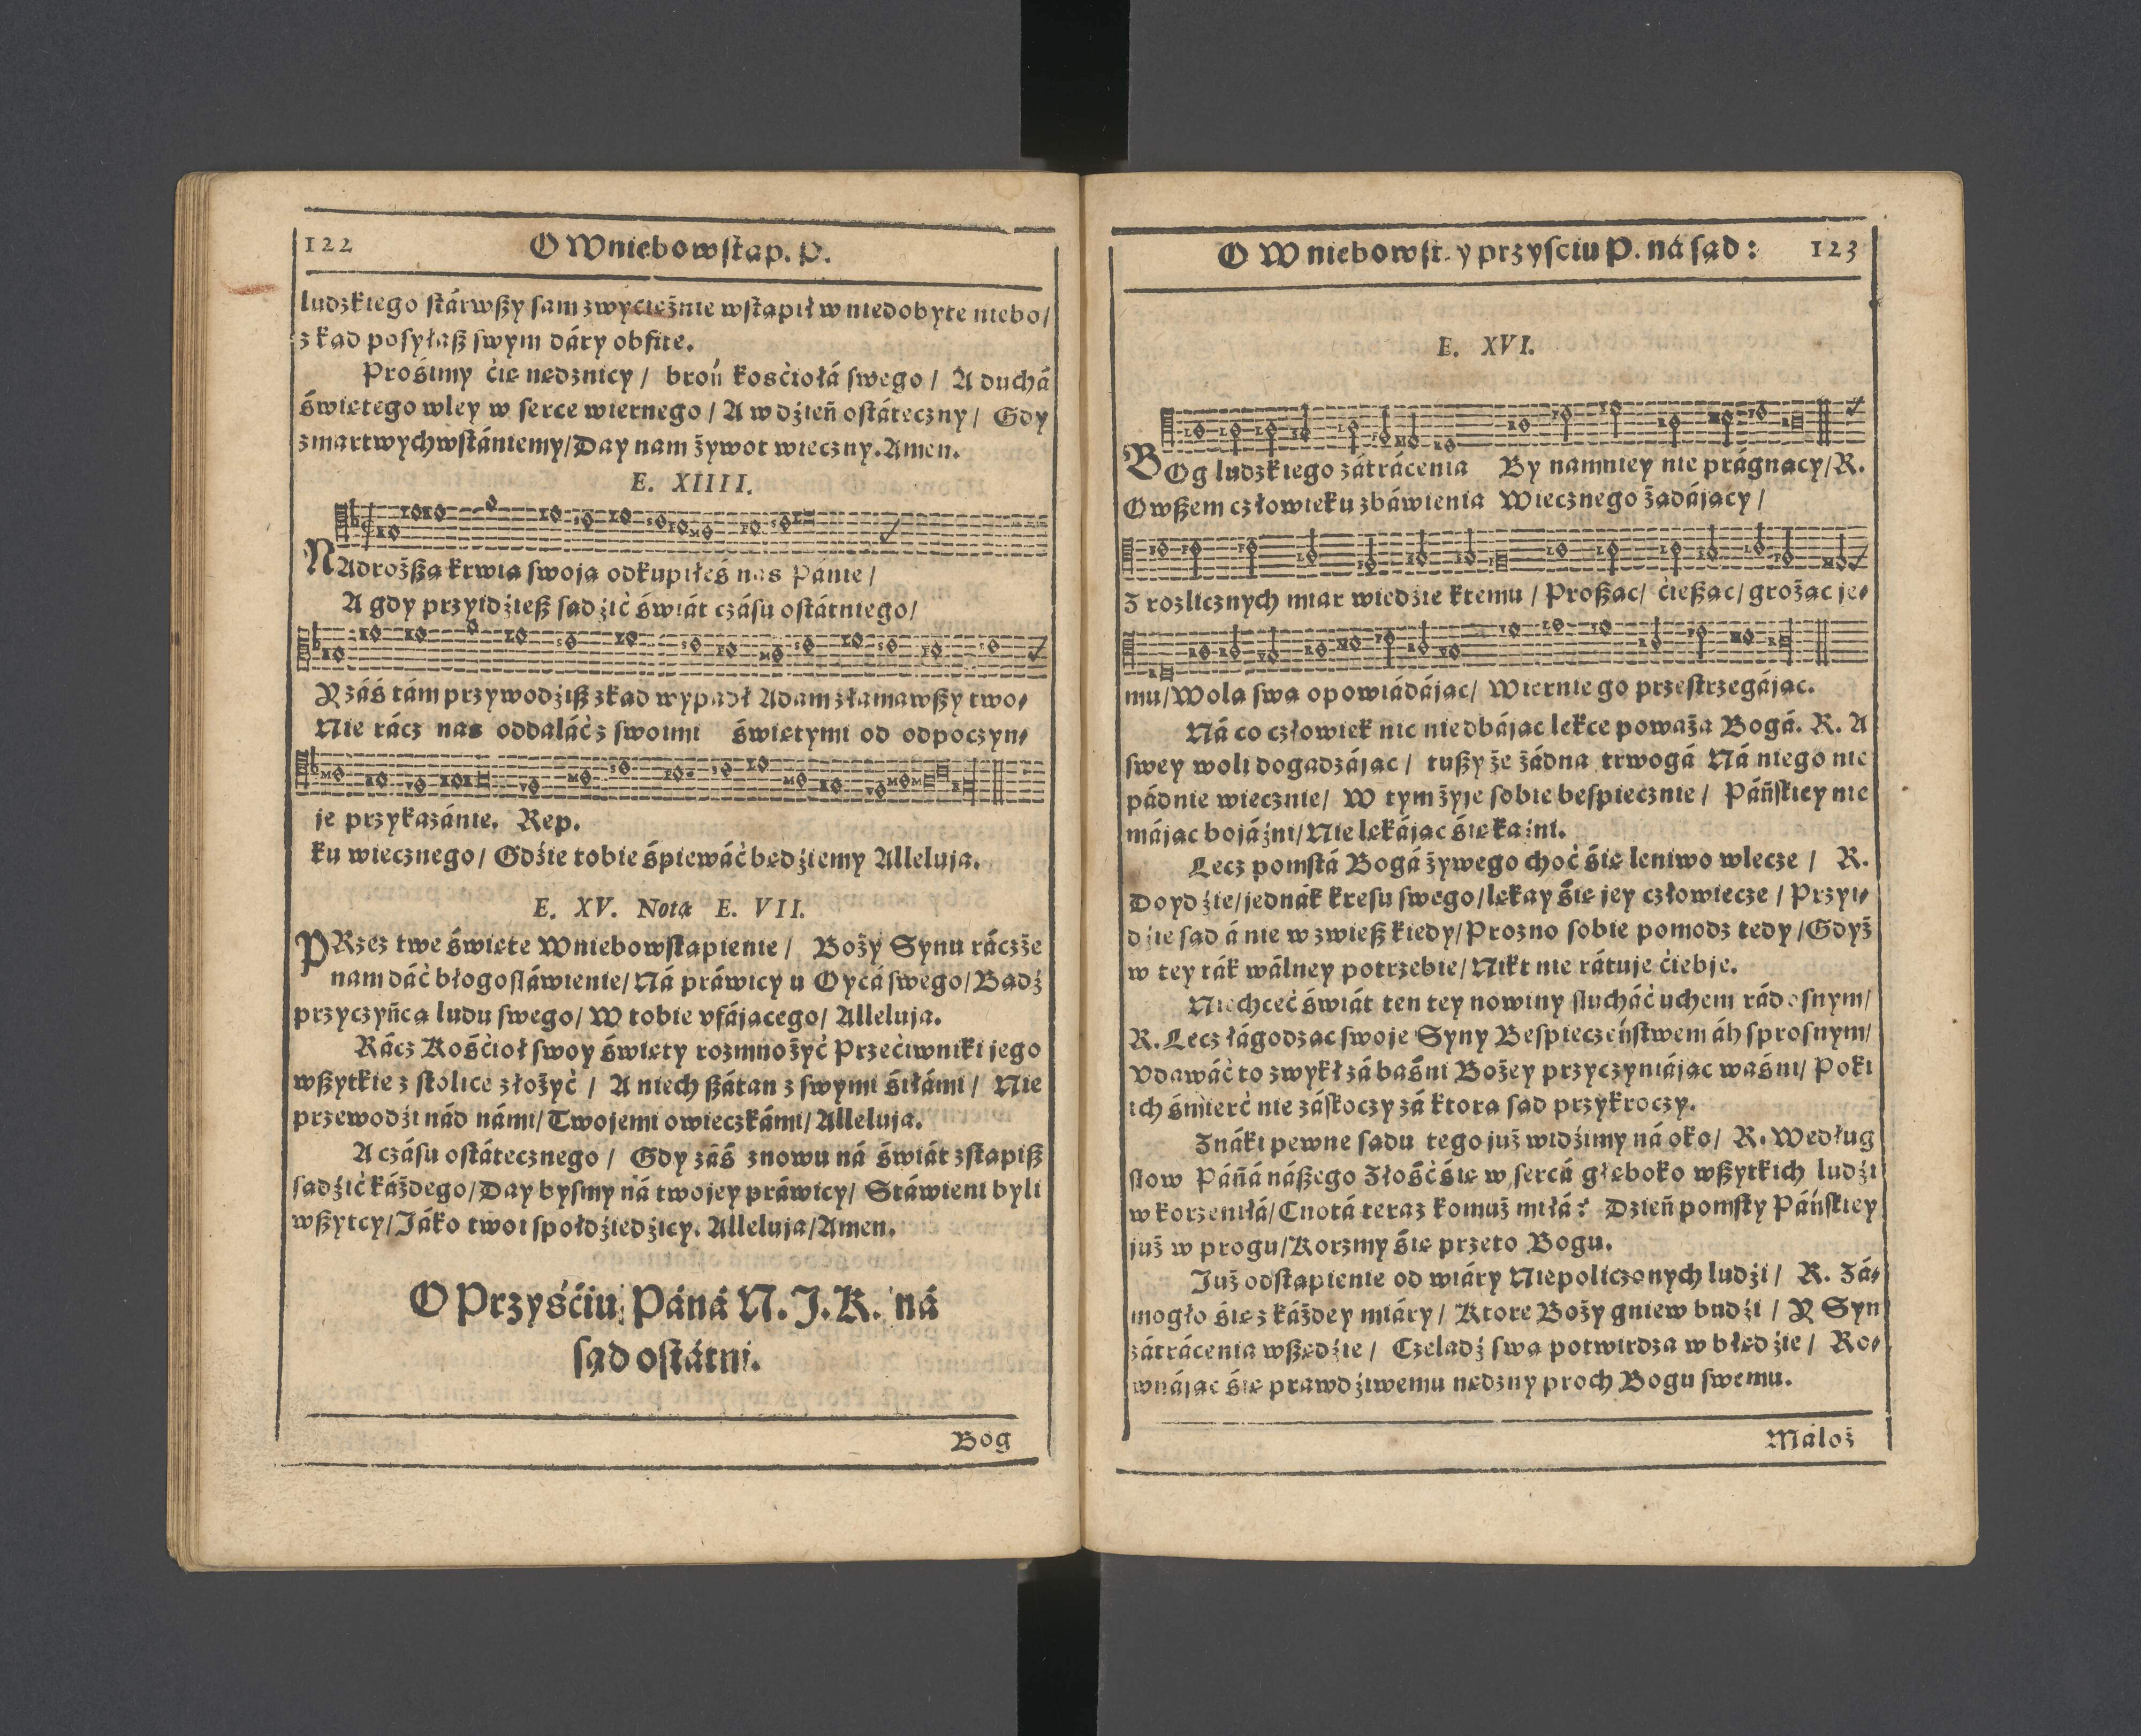 122
O Wniebowſtąp. P.
ludzkiego ſtárwßy ſam zwyćiężnie wſtąpił w niedobyte niebo/
z kąd poſyłaß ſwym dáry obfite.
Prośimy ćię nędznicy / broń kosćiołá ſwego / A duchá
świętego wley w ſerce wiernego / A w dźień oſtáteczny / Gdy
zmartwychwſtániemy/ Day nam żywot wieczny. Amen.
E. XIIII.
NAdrożßą krwią ſwoją odkupiłeś nas Pánie /
A gdy przyidźieß ſądźić świát czáſu oſtátniego/
Y záś tám przywodźiß zkąd wypadł Adam złamawßy two⸗
Nie rácz nas oddaláć z ſwoimi świętymi od odpoczyn⸗
je przykazánie. Rep.
ku wiecznego / Gdźie tobie śpiewáć będźiemy Alleluja.
E. XV. Nota E. VII.
PRzez twe święte Wniebowſtąpienie / Boży Synu ráczże
nam dáć błogoſłáwienie/ Ná práwicy u Oycá ſwego/ Bądź
przyczyńcą ludu ſwego/ W tobie vfájącego/ Alleluja.
Rácz Kośćioł ſwoy święty rozmnożyć Przećiwniki jego
wßytkie z ſtolice złożyć / A niech ßátan z ſwymi śiłámi / Nie
przewodźi nád námi/ Twojemi owieczkámi/ Alleluja.
A czáſu oſtátecznego / Gdy záś znowu ná świát zſtąpiß
ſądźić káżdego/ Day byſmy ná twojey práwicy/ Stáwieni byli
wßytcy/ Jáko twoi ſpołdźiedźicy. Alleluja/ Amen.
O Przyśćiu Páná N. J. K. ná
ſąd oſtátni.
Bog
O W niebowſt. y przyſciu P. ná ſąd:
123
E. XVI.
BOg ludzkiego zátrácenia By namniey nie prágnący/ R.
Owßem człowieku zbáwienia Wiecznego żądájący /
Z rozlicznych miar wiedźie k temu / Proßąc/ ćießąc/ grożąc je⸗
mu/ Wolą ſwą opowiádájąc/ Wiernie go przeſtrzegájąc.
Ná co człowiek nic niedbájąc lekce poważa Bogá. R. A
ſwey woli dogadzájąc / tußy że żádna trwogá Ná niego nie
pádnie wiecznie/ W tym żyje ſobie beſpiecznie / Páńſkiey nie
májąc bojáźni/ Nie lękájąc śię kaźni.
Lecz pomſtá Bogá żywego choć śię leniwo wlecze / R.
Doydźie/ jednák kreſu ſwego/ lękay śię jey człowiecze / Przyi⸗
dźie ſąd á nie w zwieß kiedy/ Prozno ſobie pomodz tedy / Gdyż
w tey ták wálney potrzebie/ Nikt nie rátuje ćiebje.
Niechceć świát ten tey nowiny ſłucháć uchem rádoſnym/
R. Lecz łágodząc ſwoje Syny Beſpieczeńſtwem áh ſproſnym/
Vdawáć to zwykł zá baśni Bożey przyczyniájąc waśni/ Poki
ich śmierć nie záſkoczy zá ktorą ſąd przykroczy.
Znáki pewne ſądu tego już widźimy ná oko/ R. Według
ſłow Páná náßego Złość śię w ſercá głęboko wßytkich ludźi
w korzeniłá/ Cnotá teraz komuż miłá? Dzień pomſty Páńſkiey
już w progu/ Korzmy śię przeto Bogu.
Już odſtąpienie od wiáry Niepoliczonych ludźi / R. Zá⸗
mogło śię z káżdey miáry / Ktore Boży gniew budźi / Y Syn
zátrácenia wßędźie / Czeladź ſwą potwirdza w błędźie / Ro⸗
wnájąc śię prawdźiwemu nędzny proch Bogu ſwemu.
Máloż